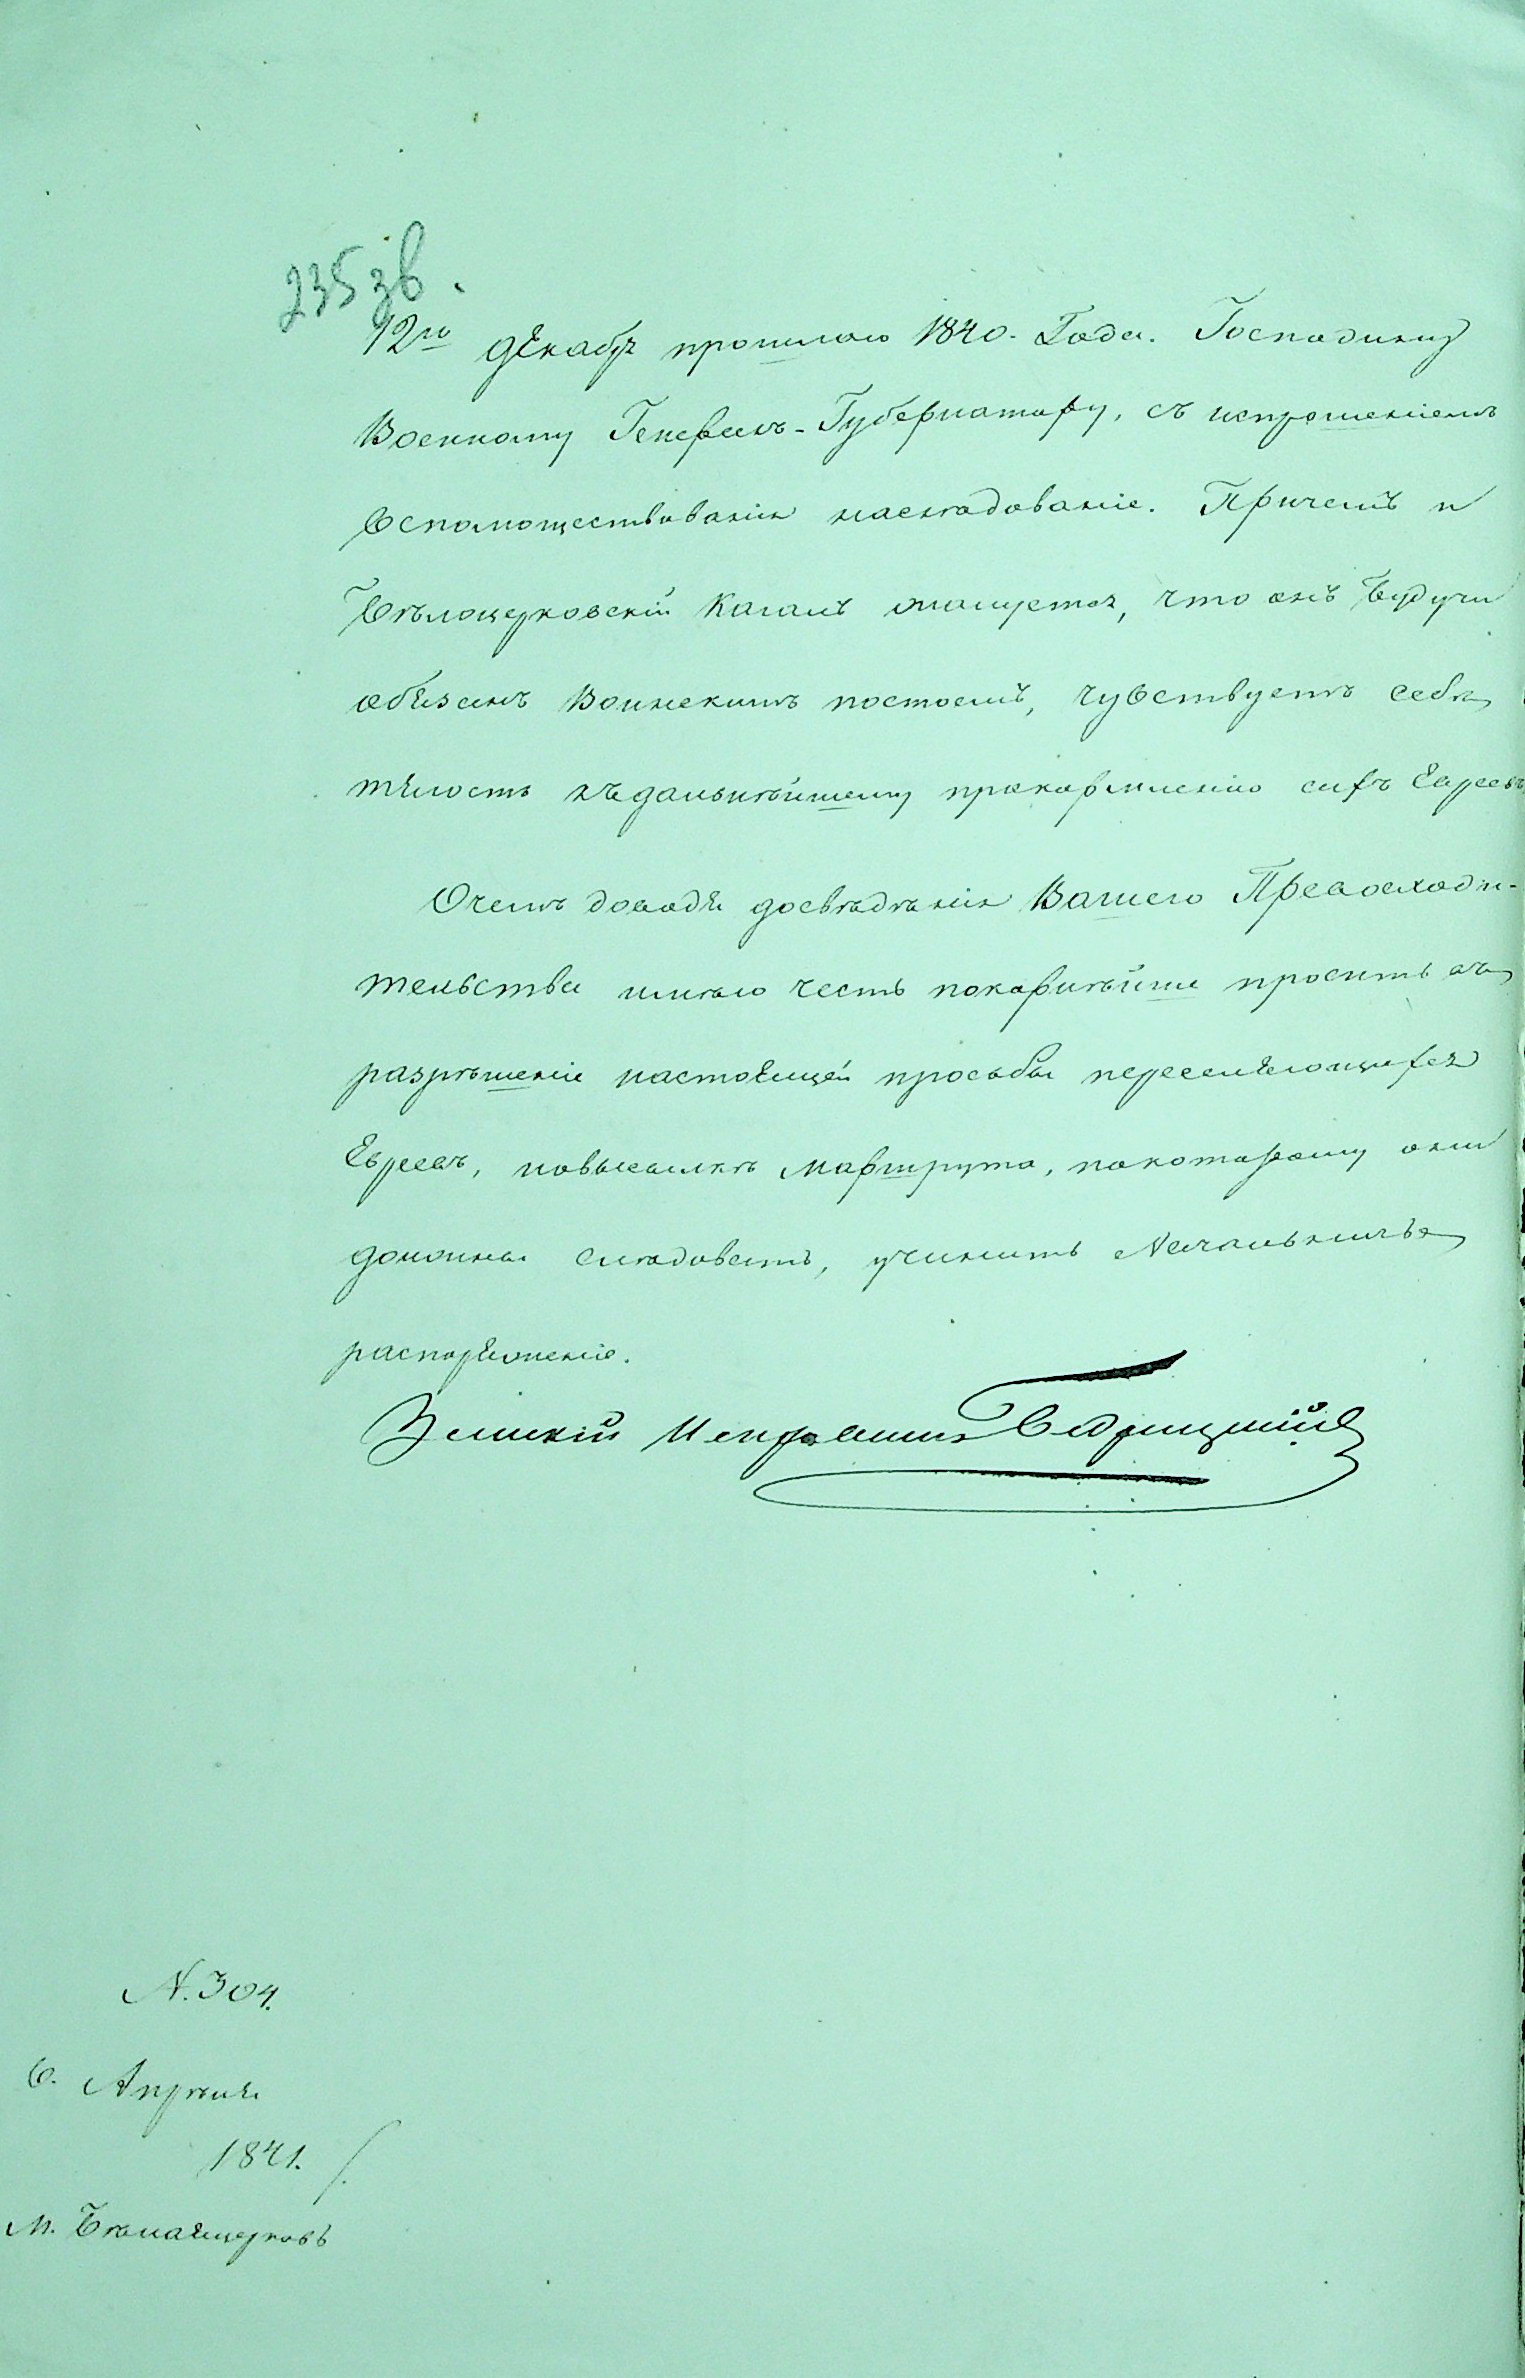 235 зв.
12го декабря прошлого 1840. Года. Господину
Военному Генералъ-Губернатору, съ испрошеніемъ
вспомоществованія наслѣдованіе. Причемъ и
Бѣлоцерковскій Кагалъ жалуется, что онъ будучи
обязанъ Воинскимъ постоемъ, чувствуетъ себѣ
тягость къдальнѣйшему прокормленію сихъ Евреевъ,
Очемъ доводя досвѣдѣнія Вашего Превосходи-
тельства имѣю честь покорнѣйше просить о
разрѣшеніи настоящей просьбы переселяющихся
Евреевъ, иовысылкѣ маршрута, покоторому они
должны слѣдовать, учинить Начальничье
распоряженіе.
Земскій Исправникъ
N. 304.
6. Апрѣля
1841. /.
М. Бѣлаяцерковь